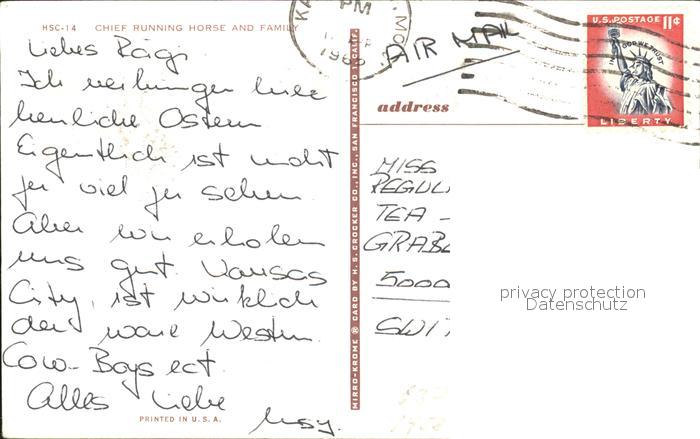 HSC-14 CHIEF RUNNING HORSE AND FAMILY
Liebes Rägi
Ich verbringen hier
herrliche Ostern
Eigentlich ist nicht
zu viel zu sehen.
Aber wir erholen
uns gut. Kansas
City, ist wirklich
der ware Western
Cow-Boys ect.
Alles Liebe
PRINTED IN U.S.A.
MIRRO-KROME ® CARD BY H. S. CROCKER CO., INC., SAN FRANCISCO 1, CALIF.
PM
MO.
AIR MAIL
U.S. POSTAGE 11¢
IN GOD WE TRUST
LIBERTY
address
MISS
REGUL
TEA -
GRAB
5000
SWIT
privacy protection
Datenschutz